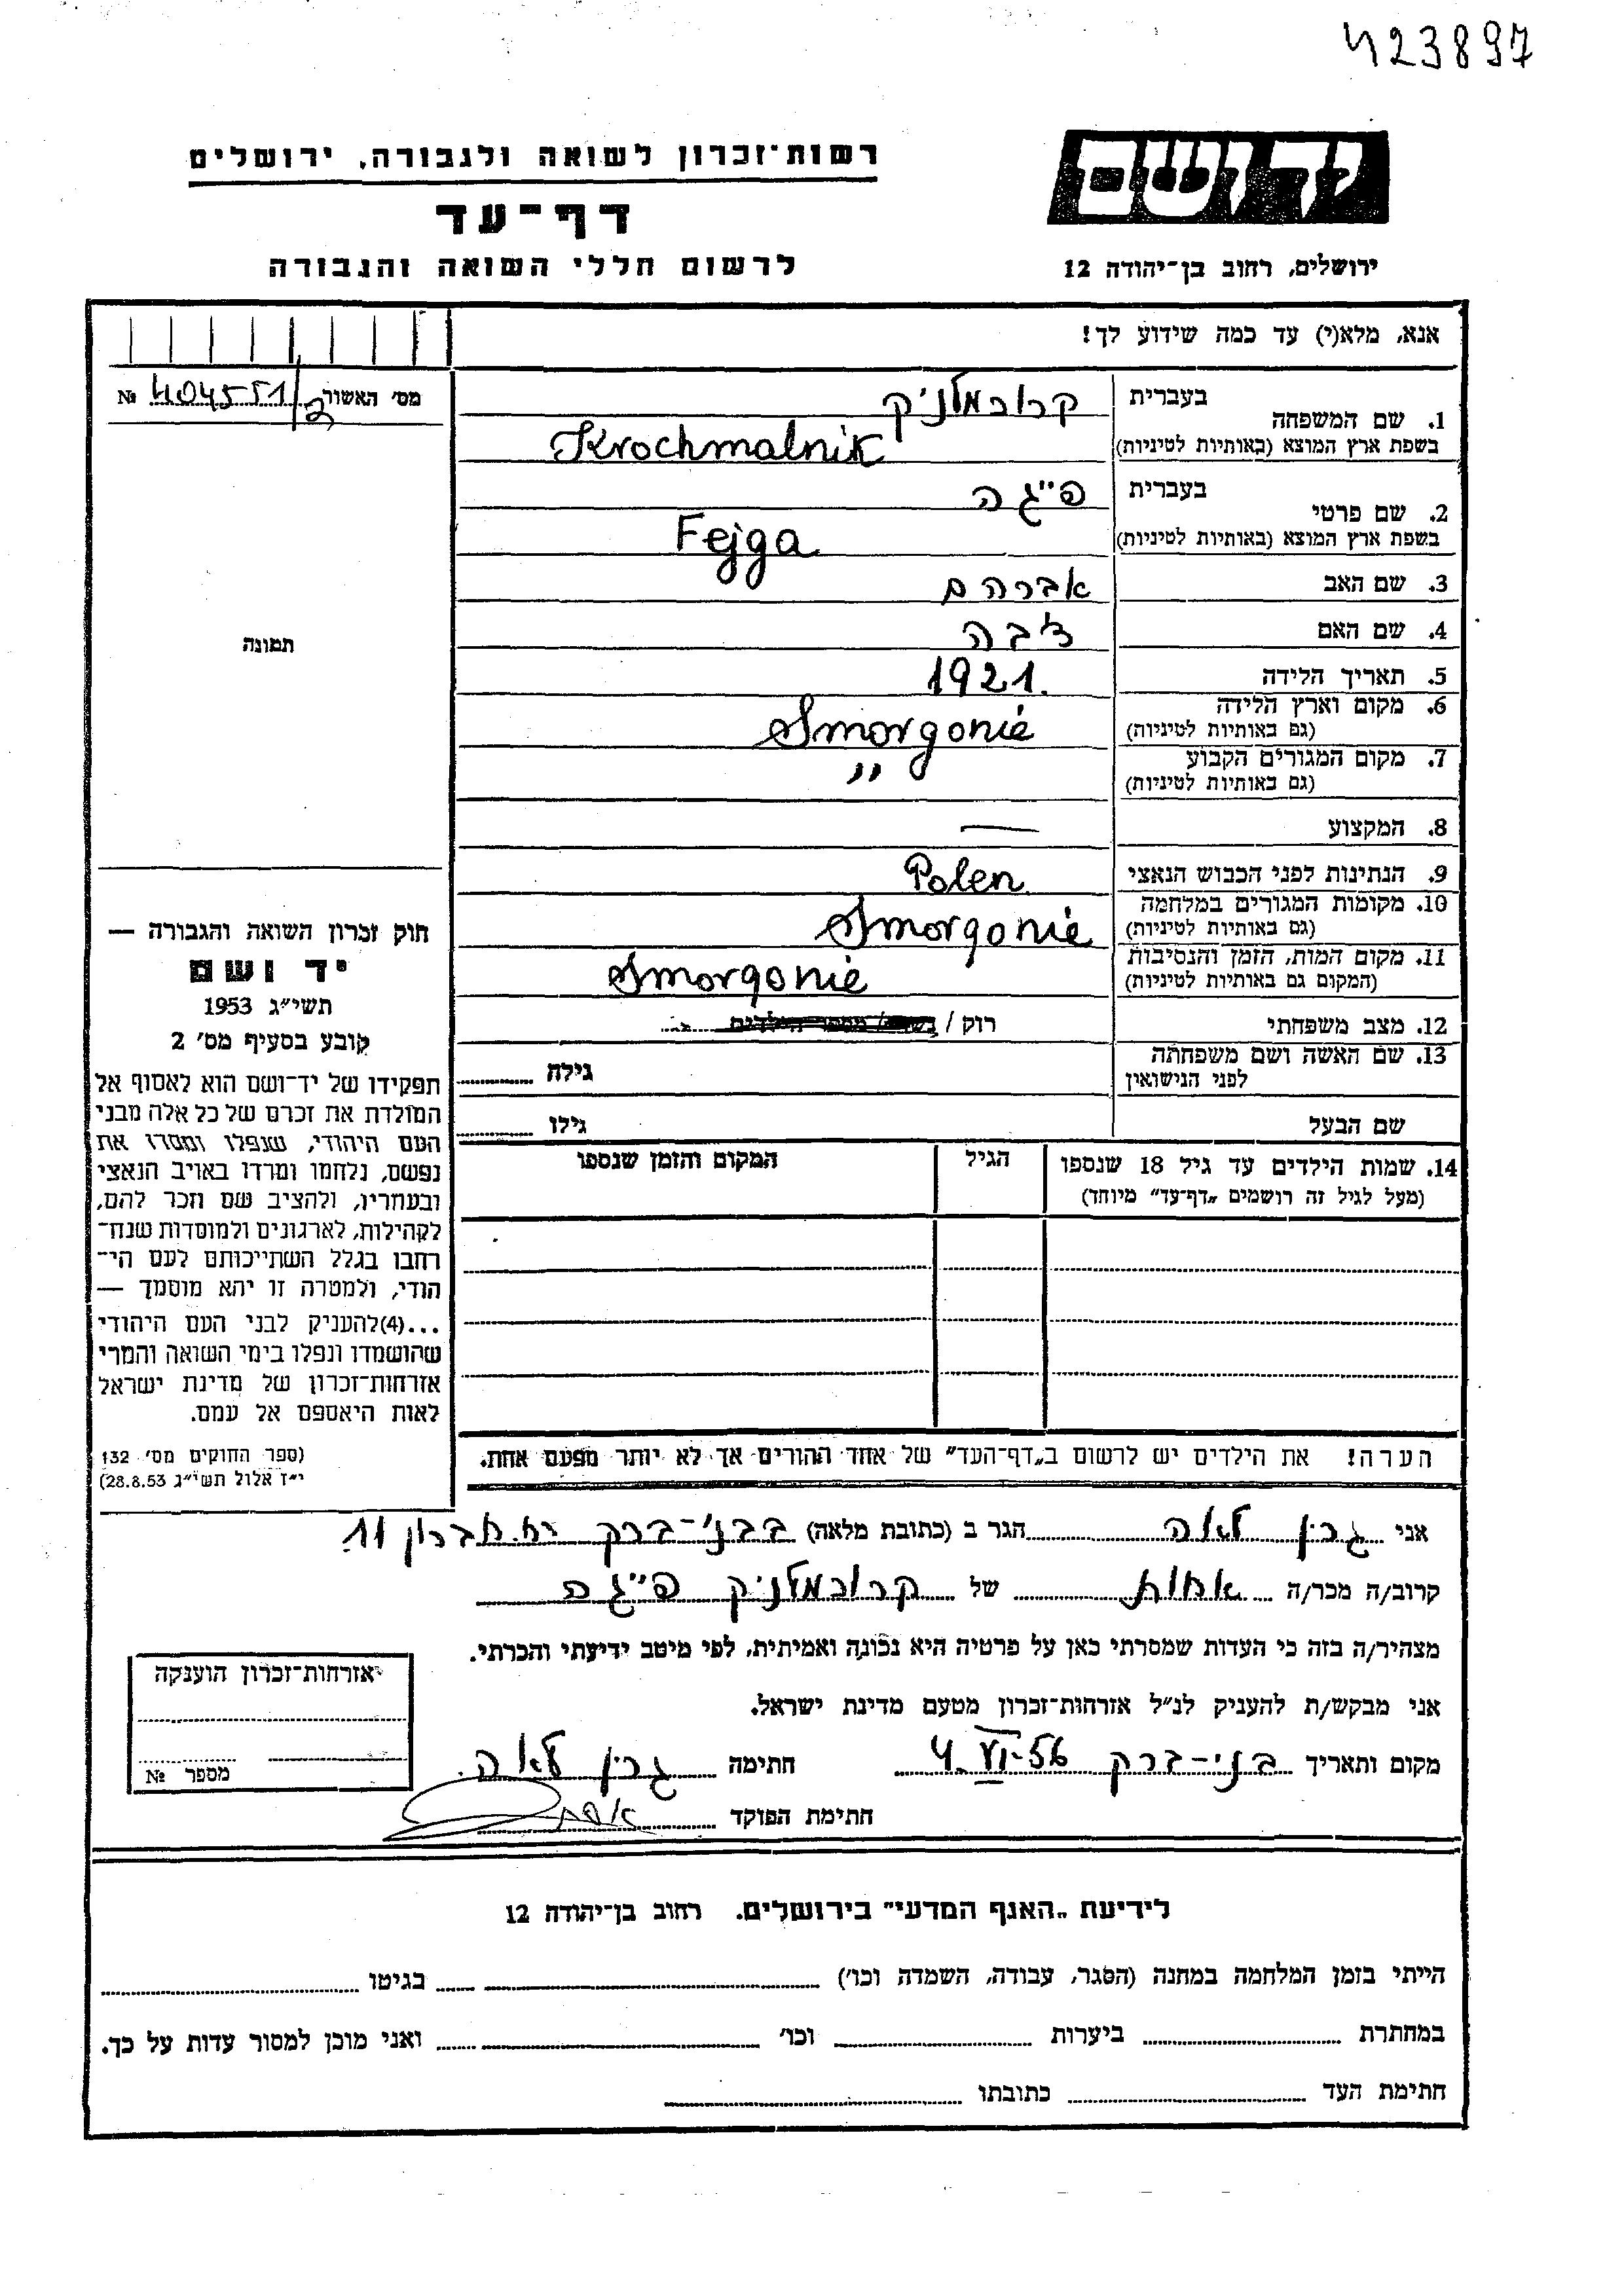 423897
יד ושם
רשות־זכרון לשואה ולגבורה, ירושלים
דף־עד
לרשום חללי השואה והגבורה
ירושלים, רחוב בן־יהודה 12
אנא, מלא(י) עד כמה שידוע לך!
מס׳ האשור № 404551/2
בעברית קרוכמלניק
1. שם המשפחה
בשפת ארץ המוצא (באותיות לטיניות) Krochmalnik
בעברית פייגה
2. שם פרטי
בשפת ארץ המוצא (באותיות לטיניות) Fejga
3. שם האב אברהם
4. שם האם
5. תאריך הלידה 1921.
6. מקום וארץ הלידה Smorgonie
(גם באותיות לטיניות)
7. מקום המגורים הקבוע "
(גם באותיות לטיניות)
8. המקצוע —
9. הנתינות לפני הכבוש הנאצי Polen
10. מקומות המגורים במלחמה Smorgonie
(גם באותיות לטיניות)
11. מקום המות, הזמן והנסיבות Smorgonie
(המקום גם באותיות לטיניות)
12. מצב משפחתי רוק /
13. שם האשה ושם משפחתה גילה
לפני הנישואין
שם הבעל גילו
14. שמות הילדים עד גיל 18 שנספו הגיל המקום והזמן שנספו
(מעל לגיל זה רושמים „דף־עד״ מיוחד)
הערה! את הילדים יש לרשום ב„דף־העד״ של אחד ההורים אך לא יותר מפעם אחת.
תמונה
חוק זכרון השואה והגבורה —
יד ושם
תשי״ג 1953
קובע בסעיף מס׳ 2
תפקידו של יד־ושם הוא לאסוף אל
המולדת את זכרם של כל אלה מבני
העם היהודי, שנפלו ומסרו את
נפשם, נלחמו ומרדו באויב הנאצי
ובעוזריו, ולהציב שם וזכר להם,
לקהילות, לארגונים ולמוסדות שנח־
רבו בגלל השתייכותם לעם הי־
הודי, ולמטרה זו יהא מוסמך —
...(4)להעניק לבני העם היהודי
שהושמדו ונפלו בימי השואה והמרי
אזרחות־זכרון של מדינת ישראל
לאות היאספם אל עמם.
(ספר החוקים מס׳ 132
י״ז אלול תשי״ג 28.8.53)
אני גרין לאה הגר ב (כתובת מלאה) בבני־ברק 11
קרוב/ה מכר/ה אחות של קרוכמלניק פייגה
מצהיר/ה בזה כי העדות שמסרתי כאן על פרטיה היא נכונה ואמיתית, לפי מיטב ידיעתי והכרתי.
אני מבקש/ת להעניק לנ״ל אזרחות־זכרון מטעם מדינת ישראל.
מקום ותאריך בני־ברק 4.VI.56 חתימה גרין לאה
חתימת הפוקד
אזרחות־זכרון הוענקה
מספר №
לידיעת „האגף המדעי״ בירושלים. רחוב בן־יהודה 12
הייתי בזמן המלחמה במחנה (הסגר, עבודה, השמדה וכו׳) בגיטו
במחתרת ביערות וכו׳ ואני מוכן למסור עדות על כך.
חתימת העד כתובתו